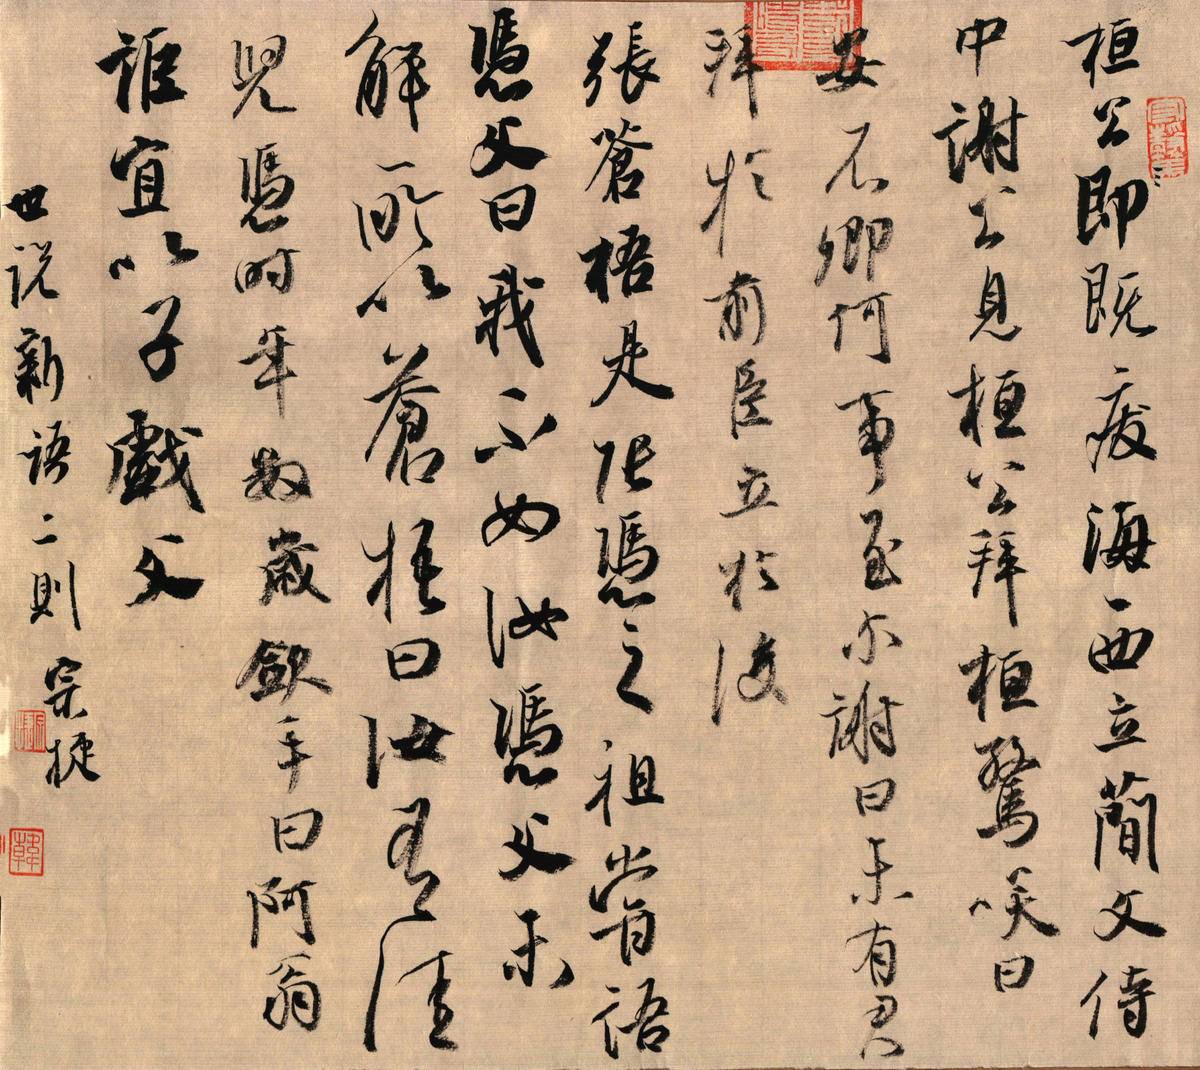 桓公即既廢海西立簡文侍
中謝公見桓公拜桓驚笑曰
安石卿何事至尔謝曰未有君
拜於前臣立於後
張蒼梧是張憑之祖嘗語
憑父曰我不如汝憑父未
解所以蒼梧曰汝有佳
兒憑時年數歲斂手曰阿翁
詎宜以子戲父
世說新語二則 宗捷
韓